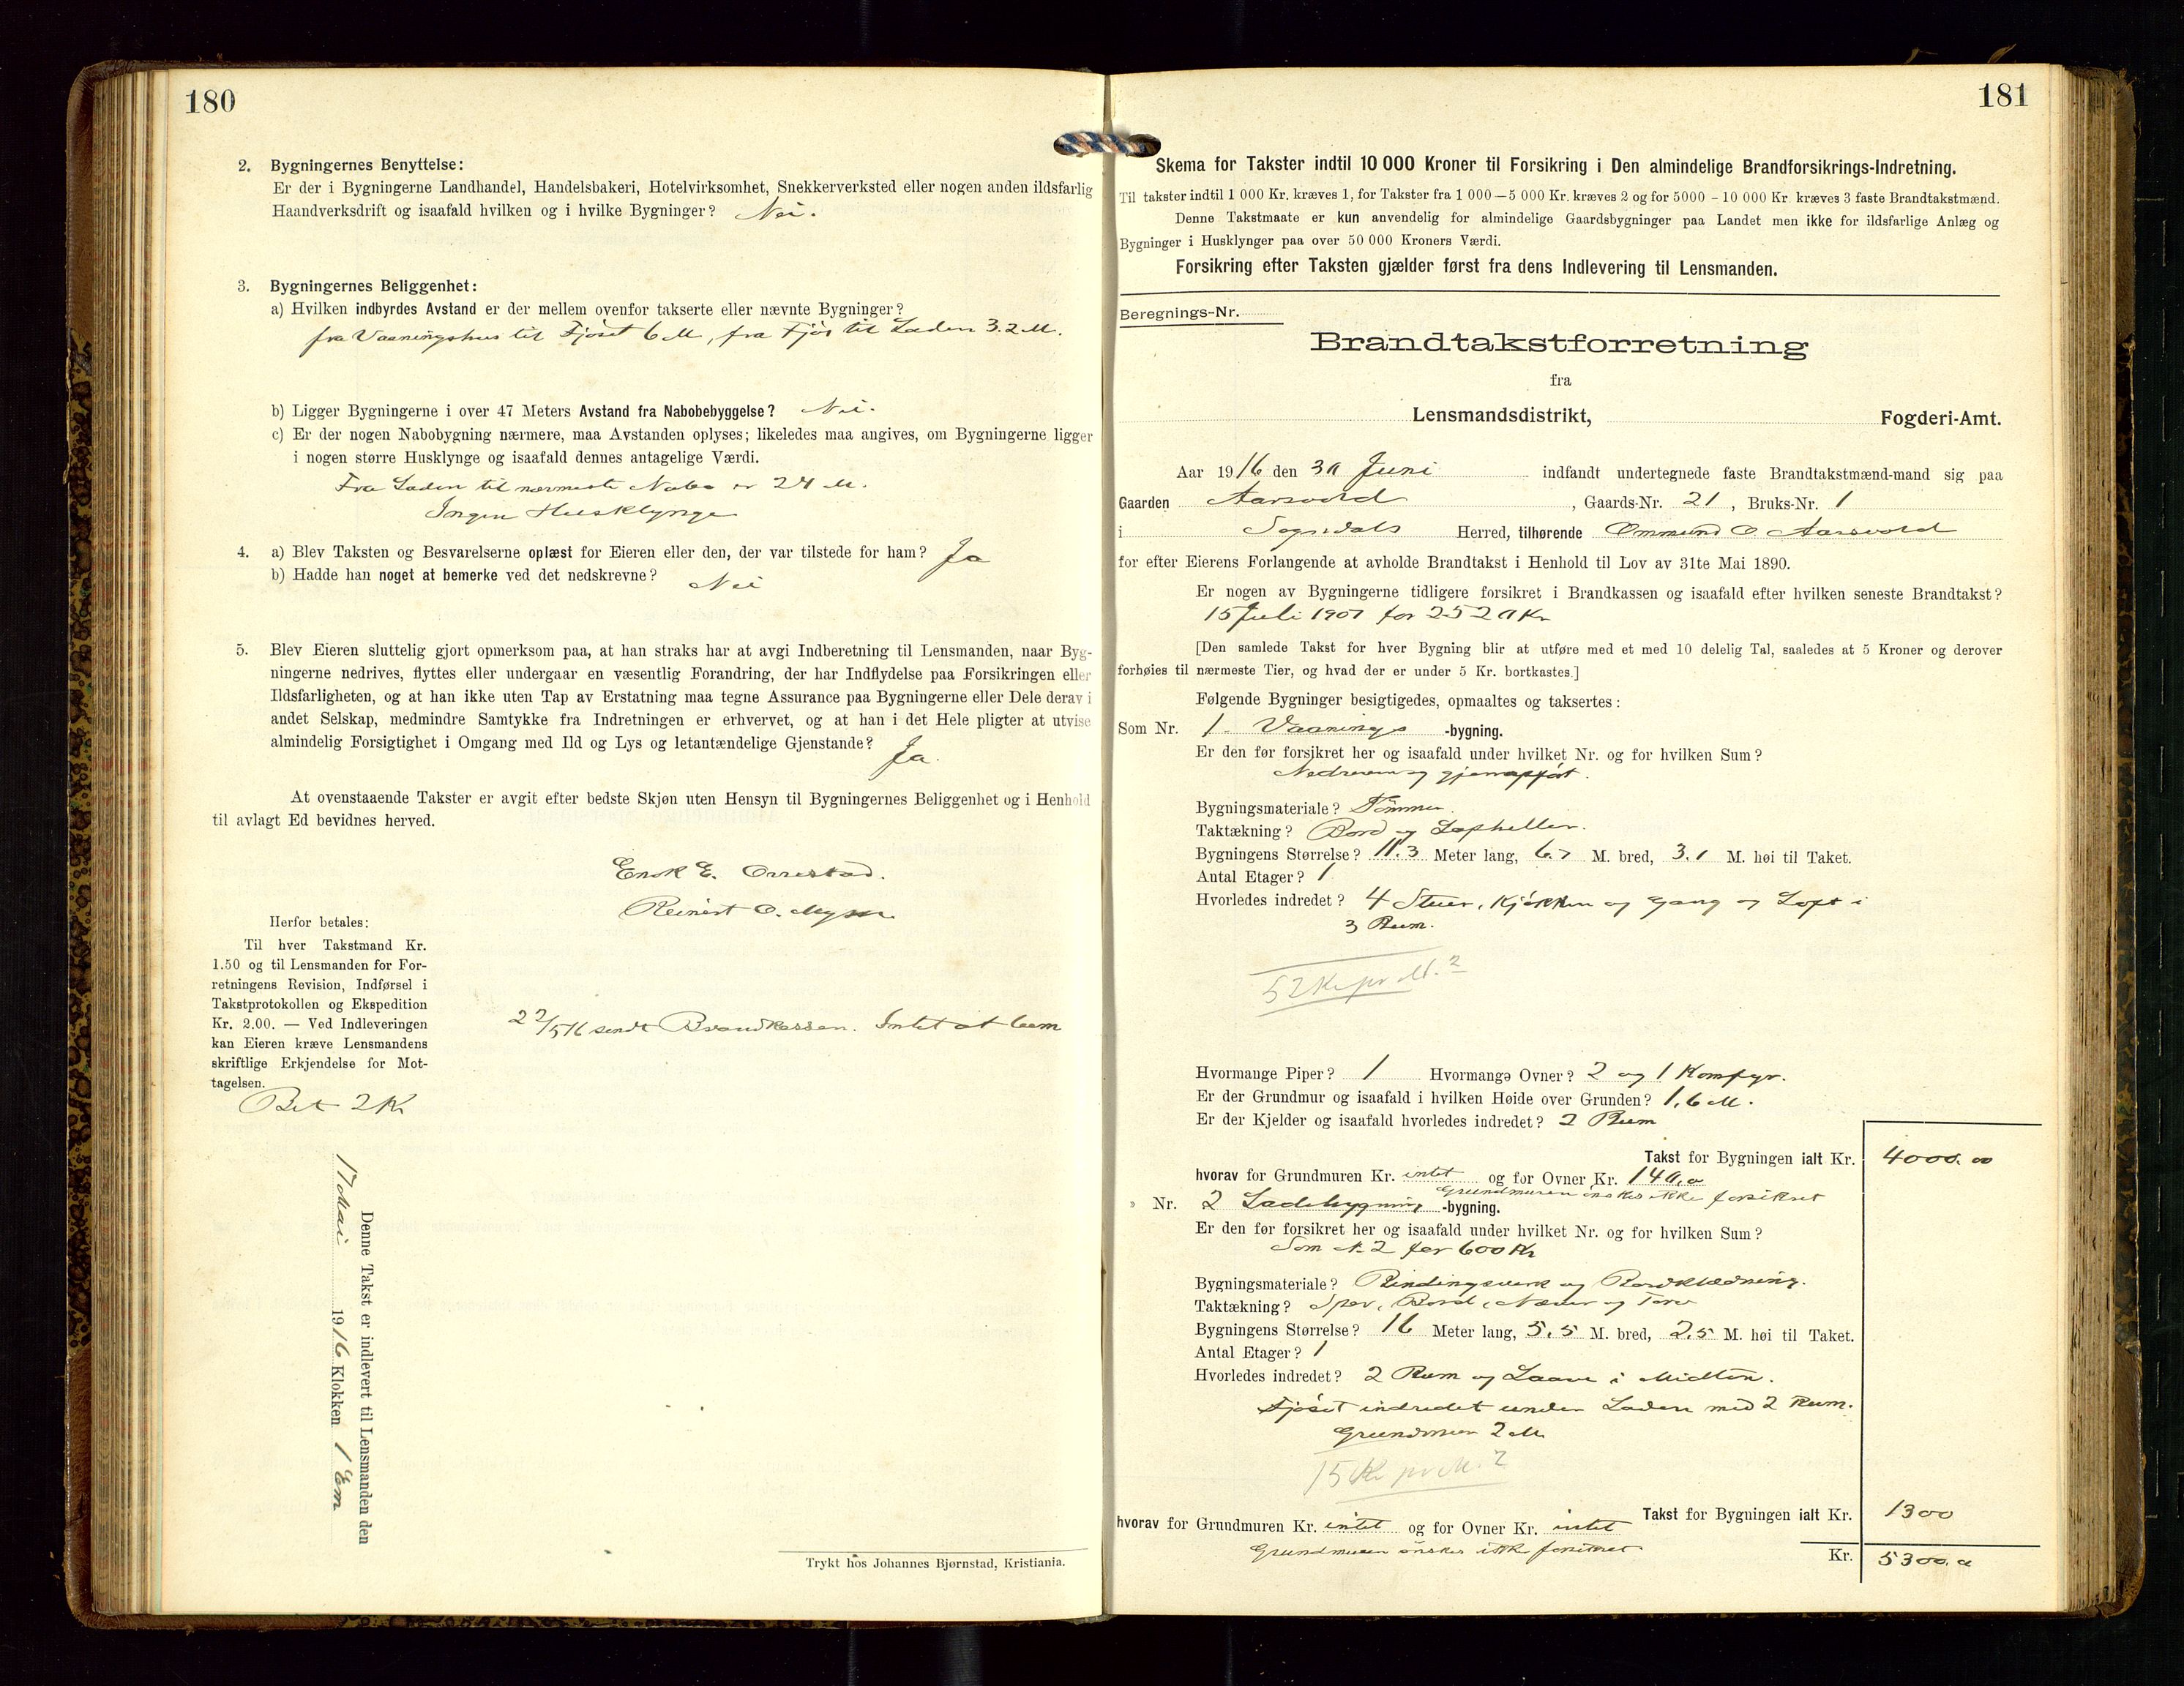 180
2. Bygningernes Benyttelse:
Er der i Bygningerne Landhandel, Handelsbakeri, Hotelvirksomhet, Snekkerverksted eller nogen anden ildsfarlig
Haandverksdrift og isaafald hvilken og i hvilke Bygninger? Nei.
3. Bygningernes Beliggenhet:
a) Hvilken indbyrdes Avstand er der mellem ovenfor takserte eller nævnte Bygninger?
fra Vaaningshus til Fjøset 6 M, fra Fjøs til Laden 3.2 M.
b) Ligger Bygningerne i over 47 Meters Avstand fra Nabobebyggelse? Nei.
c) Er der nogen Nabobygning nærmere, maa Avstanden oplyses; likeledes maa angives, om Bygningerne ligger
i nogen større Husklynge og isaafald dennes antagelige Værdi.
Fra Laden til nærmeste Nabo er 24 M.
Ingen Husklynge
4. a) Blev Taksten og Besvarelserne oplæst for Eieren eller den, der var tilstede for ham? Ja
b) Hadde han noget at bemerke ved det nedskrevne? Nei
5. Blev Eieren sluttelig gjort opmerksom paa, at han straks har at avgi Indberetning til Lensmanden, naar Byg-
ningerne nedrives, flyttes eller undergaar en væsentlig Forandring, der har Indflydelse paa Forsikringen eller
Ildsfarligheten, og at han ikke uten Tap av Erstatning maa tegne Assurance paa Bygningerne eller Dele derav i
andet Selskap, medmindre Samtykke fra Indretningen er erhvervet, og at han i det Hele pligter at utvise
almindelig Forsigtighet i Omgang med Ild og Lys og letantændelige Gjenstande? Ja.
At ovenstaaende Takster er avgit efter bedste Skjøn uten Hensyn til Bygningernes Beliggenhet og i Henhold
til avlagt Ed bevidnes herved.
Enok E. Orrestad.
Reinert O.
Herfor betales:
Til hver Takstmand Kr.
1.50 og til Lensmanden for For-
retningens Revision, Indførsel i
Takstprotokollen og Ekspedition
Kr. 2.00. — Ved Indleveringen
kan Eieren kræve Lensmandens
skriftlige Erkjendelse for Mot-
tagelsen.
Bet 2 Kr
22/5 16 sendt Brandkassen. Intet at bem
Denne Takst er indlevert til Lensmanden den
17 Mai 1916 Klokken 1 Em
Trykt hos Johannes Bjørnstad, Kristiania.
181
Skema for Takster indtil 10 000 Kroner til Forsikring i Den almindelige Brandforsikrings-Indretning.
Til takster indtil 1 000 Kr. kræves 1, for Takster fra 1 000—5 000 Kr. kræves 2 og for 5000 - 10 000 Kr. kræves 3 faste Brandtakstmænd.
Denne Takstmaate er kun anvendelig for almindelige Gaardsbygninger paa Landet men ikke for ildsfarlige Anlæg og
Bygninger i Husklynger paa over 50 000 Kroners Værdi.
Forsikring efter Taksten gjælder først fra dens Indlevering til Lensmanden.
Beregnings-Nr.
Brandtakstforretning
fra
Lensmandsdistrikt, Fogderi-Amt.
Aar 1916 den 30 Juni indfandt undertegnede faste Brandtakstmænd-mand sig paa
Gaarden Aarsvold, Gaards-Nr. 21, Bruks-Nr. 1
i Sogndals Herred, tilhørende Ommund O. Aarsvold
for efter Eierens Forlangende at avholde Brandtakst i Henhold til Lov av 31te Mai 1890.
Er nogen av Bygningerne tidligere forsikret i Brandkassen og isaafald efter hvilken seneste Brandtakst?
15 Juli 1907 for 2520 Kr
[Den samlede Takst for hver Bygning blir at utføre med et med 10 delelig Tal, saaledes at 5 Kroner og derover
forhøies til nærmeste Tier, og hvad der er under 5 Kr. bortkastes.]
Følgende Bygninger besigtigedes, opmaaltes og taksertes:
Som Nr. 1 Vaanings -bygning.
Er den før forsikret her og isaafald under hvilket Nr. og for hvilken Sum?
Nedreven og gjenopført.
Bygningsmateriale? Tømmer.
Taktækning? Bord og Lapheller.
Bygningens Størrelse? 11.3 Meter lang, 6.7 M. bred, 3.1 M. høi til Taket.
Antal Etager? 1
Hvorledes indredet? 4 Stuer, Kjøkken og Gang og Loft i
3 Rum.
52 Kr pr M.2
Hvormange Piper? 1 Hvormange Ovner? 2 og 1 Komfyr.
Er der Grundmur og isaafald i hvilken Høide over Grunden? 1,6 M.
Er der Kjelder og isaafald hvorledes indredet? 2 Rum
Takst for Bygningen ialt Kr. 4000.00
hvorav for Grundmuren Kr. intet og for Ovner Kr. 140,0
Grundmuren ønskes ikke forsikret
» Nr. 2 Ladebygning -bygning.
Er den før forsikret her og isaafald under hvilket Nr. og for hvilken Sum?
Som N. 2 for 600 Kr
Bygningsmateriale? Bindingsverk og Bordklædning.
Taktækning? Sper, Bord, Næver og Torv
Bygningens Størrelse? 16 Meter lang, 5.5 M. bred, 2.5 M. høi til Taket.
Antal Etager? 1
Hvorledes indredet? 2 Rum og Laave i Midten.
Fjøset indredet under Laden med 2 Rum.
Grundmur 2 M
15 Kr pr M.2
Takst for Bygningen ialt Kr. 1300
hvorav for Grundmuren Kr. intet og for Ovner Kr. intet
Grundmuren ønskes ikke forsikret
Kr. 5300.0